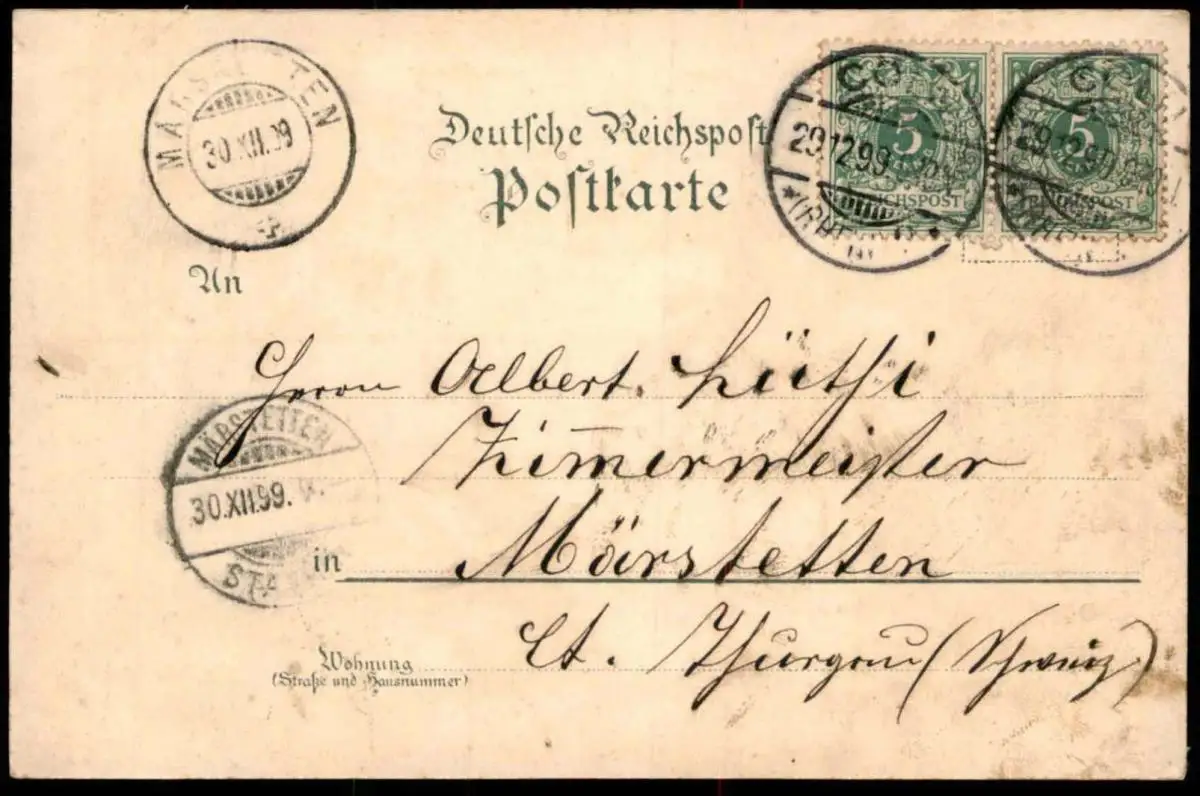 MÄRSTETTEN
30.XII.99
Deutsche Reichspost
Postkarte
5
REICHSPOST
5
REICHSPOST
29.12.99
29.12.99
An
Herrn Albert Lüthi
Zimmermeister
MÄRSTETTEN
30.XII.99.
in Märstetten
Ct. Thurgau (Schweiz)
Wohnung
(Straße und Hausnummer)